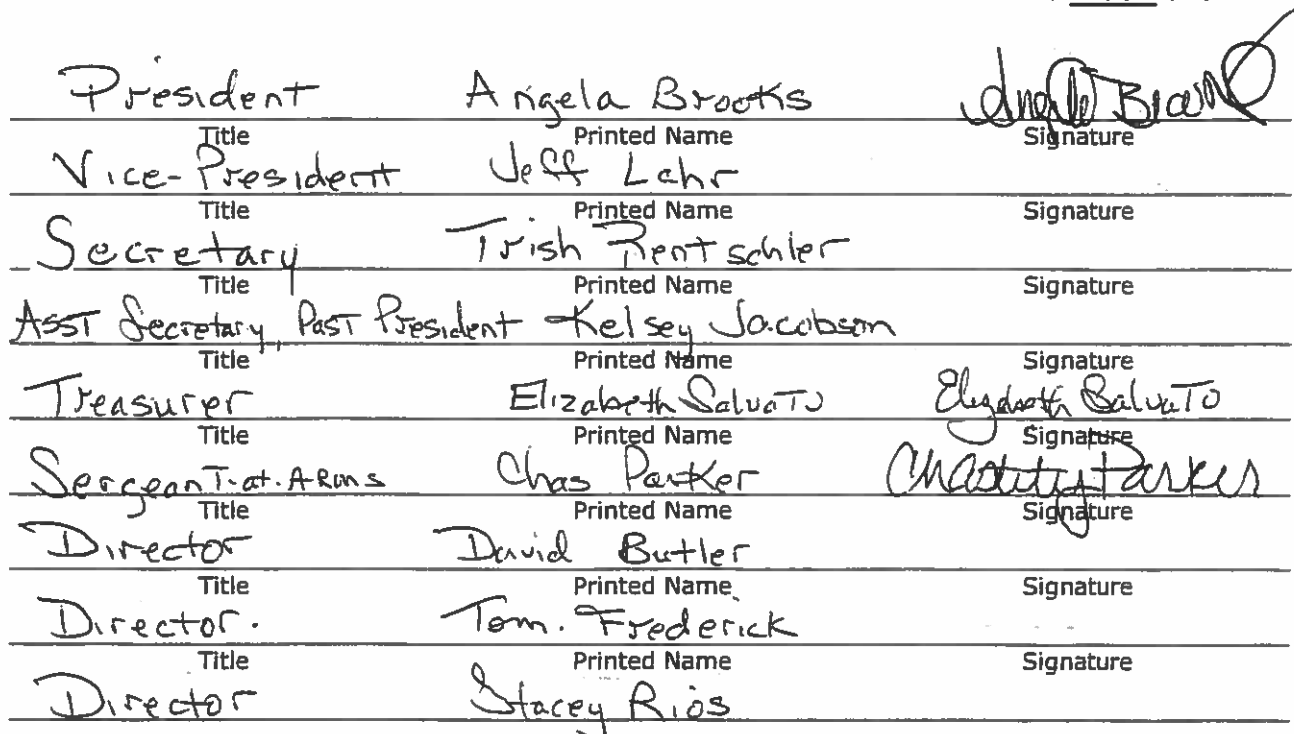 President Angela Brooks Angela Brooks
Title Printed Name Signature
Vice-President Jeff Lahr
Title Printed Name Signature
Secretary Trish Rentschler
Title Printed Name Signature
Asst Secretary, Past President Kelsey Jacobson
Title Printed Name Signature
Treasurer Elizabeth Salvato Elizabeth Salvato
Title Printed Name Signature
Sergeant-at-Arms Chas Parker Chastity Parker
Title Printed Name Signature
Director David Butler
Title Printed Name Signature
Director. Tom. Frederick
Title Printed Name Signature
Director Stacey Rios